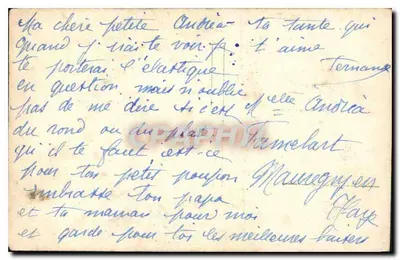 Ma chère petite Andréa
Quand j'irai te voir je
te porterai l'élastique
en question, mais n'oublie
pas de me dire si c'est
du rond ou du plat
qu'il te faut est-ce
pour ton petit poupon
embrasse ton papa
et ta maman pour moi
et garde pour toi les meilleures baisers
ta tante qui
t'aime
Fernande
Melle Andréa
Famelart
Mauregny en
Haye